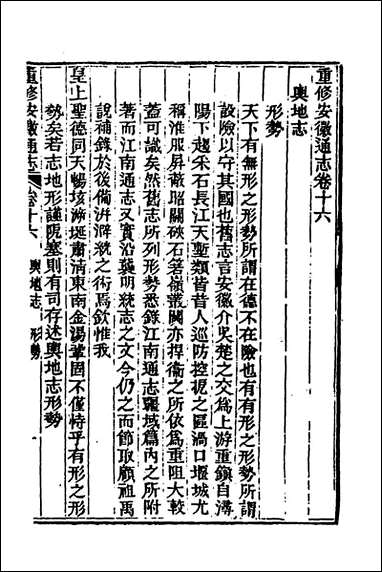 重修安徽通志卷十六
輿地志
形勢
天下有無形之形勢所謂在德不在險也有有形之形勢所謂
設險以守其國也舊志言安徽介吳楚之交爲上游重鎮自潯
陽下趨采石長江天塹類皆昔人巡防控扼之區渦口堰城尤
稱淮服屏蔽昭關硤石箬嶺叢關亦捍衞之所依爲重阻大較
蓋可識矣然舊志所列形勢悉錄江南通志疆域篇內之所附
著而江南通志又實沿襲明統志之文今仍之而節取顧祖禹
說補錄於後備洴澼絖之術焉欽惟我
皇上聖德同天暢垓溯埏肅清東南金湯鞏固不僅恃乎有形之形
勢矣若志地形謹阨塞則有司存述輿地志形勢
重修安徽通志 卷十六 輿地志 形勢